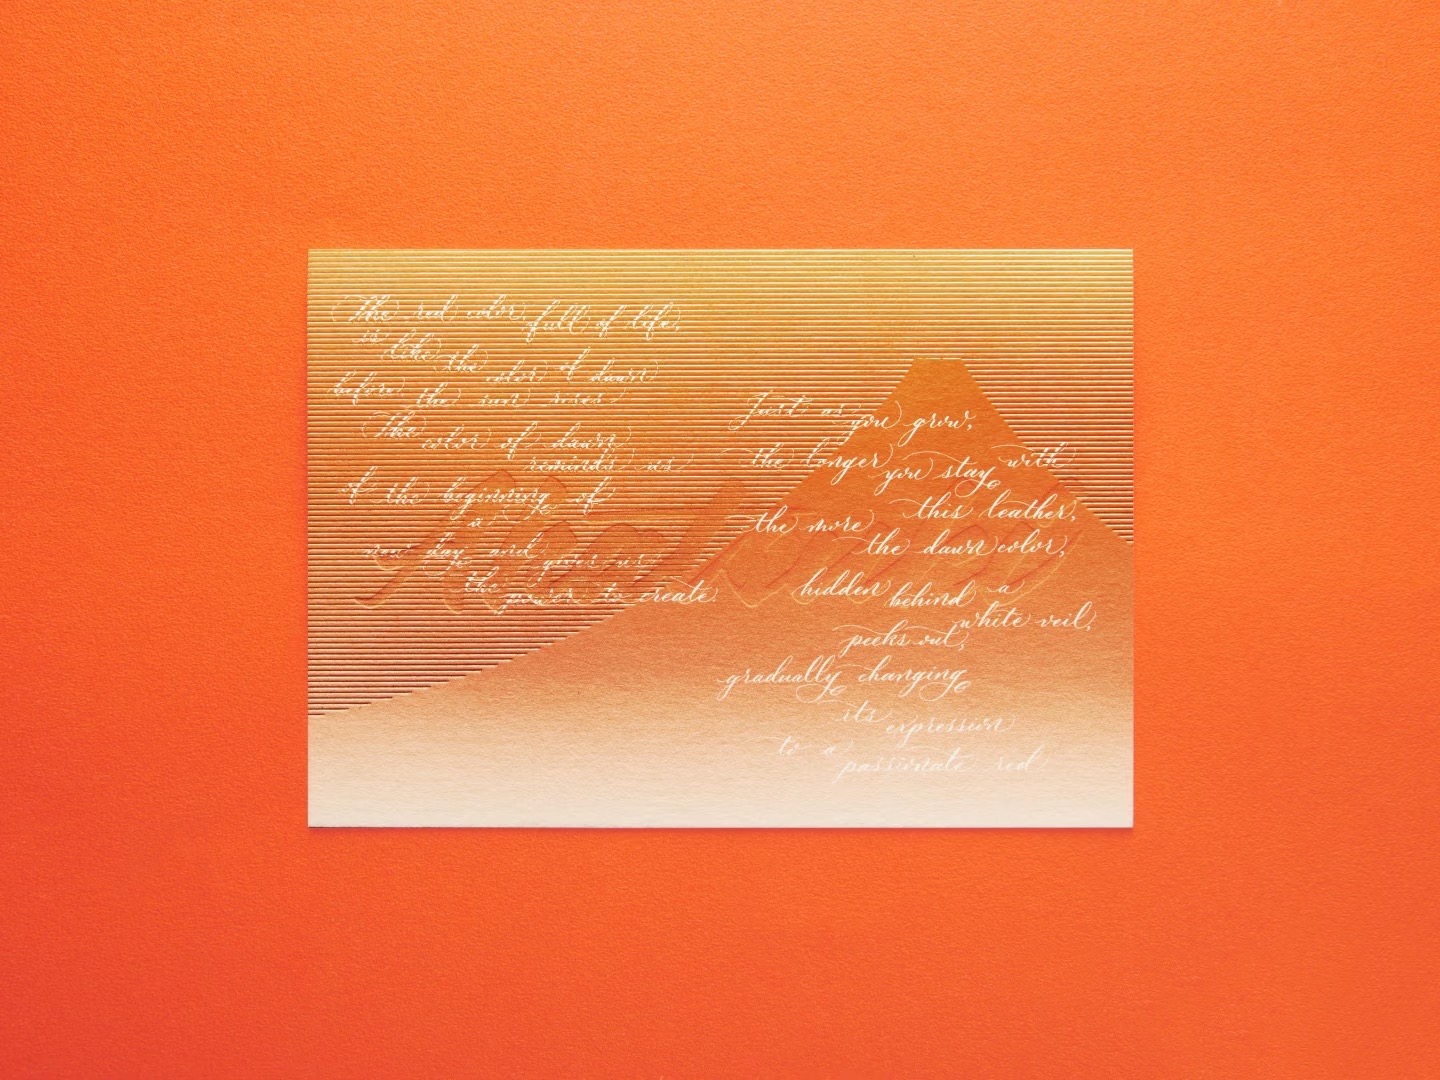 The red color, full of life,
is like the color of dawn
before the sun rises
The color of dawn
reminds us
of the beginning of
a
new day and gives us
the power to create.
Just as you grow,
the longer you stay with
this leather,
the more
the dawn color,
hidden behind a
white veil,
peeks out,
gradually changing
its expression
to a passionate red